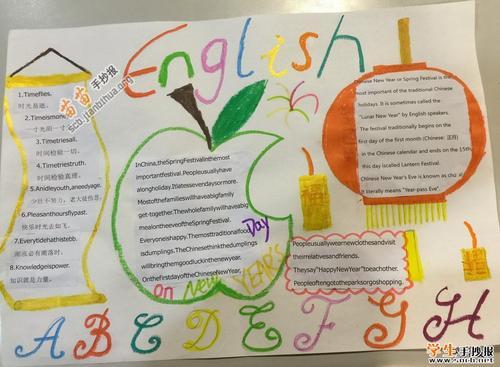 English
1.Timeflies.
时光易逝。
2.Timeismoney
一寸光阴一寸
3.Timetriesall.
时间检验一切.
4.Timetriestruth.
时间检验真理.
5.Anidleyouth,aneedyage.
少壮不努力，老大徒伤悲
6.Pleasanthoursflypast.
快乐时光去如飞.
7.Everytidehathistebb.
潮涨必有潮落时.
8.Knowledgeispower.
知识就是力量.
InChina,theSpringFestivalinthemost
importantfestival.Peopleusuallyhave
alongholiday.Itlatessevendaysormore.
Mostofthefamilieswillhaveabigfamily
get-together.Thewholefamilywillhaveabig
mealontheeveoftheSpringFestival.
Everyoneishappy.Themosttraditionalfood
isdumplings.TheChinesethinkthedumplings
willbringthemgoodluckinthenewyear.
OnthefirstdayoftheChineseNewYear,
on New YEAR'S Day
Chinese New Year or Spring Festival is the
most important of the traditional Chinese
holidays. It is sometimes called the
"Lunar New Year" by English speakers.
The festival traditionally begins on the
first day of the first month (Chinese: 正月)
in the Chinese calendar and ends on the 15th
this day iscalled Lantern Festival.
Chinese New Year's Eve is known as chú xī
It literally means "Year-pass Eve".
Peopleusuallywearnewclothesandvisit
theirrelativesandfriends.
Theysay"HappyNewYear"toeachother.
Peopleoftengototheparksorgoshopping.
A B C D E F G H
苗苗手抄报
scb.jianbihua.org
学生手抄报
www.sxcb.net